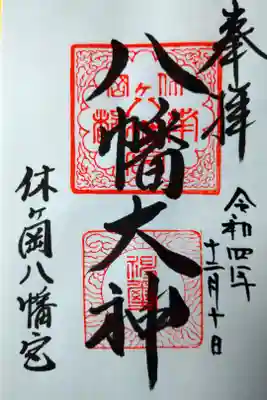 奉拝
八幡大神
令和四年
十二月十日
休ヶ岡八幡宮